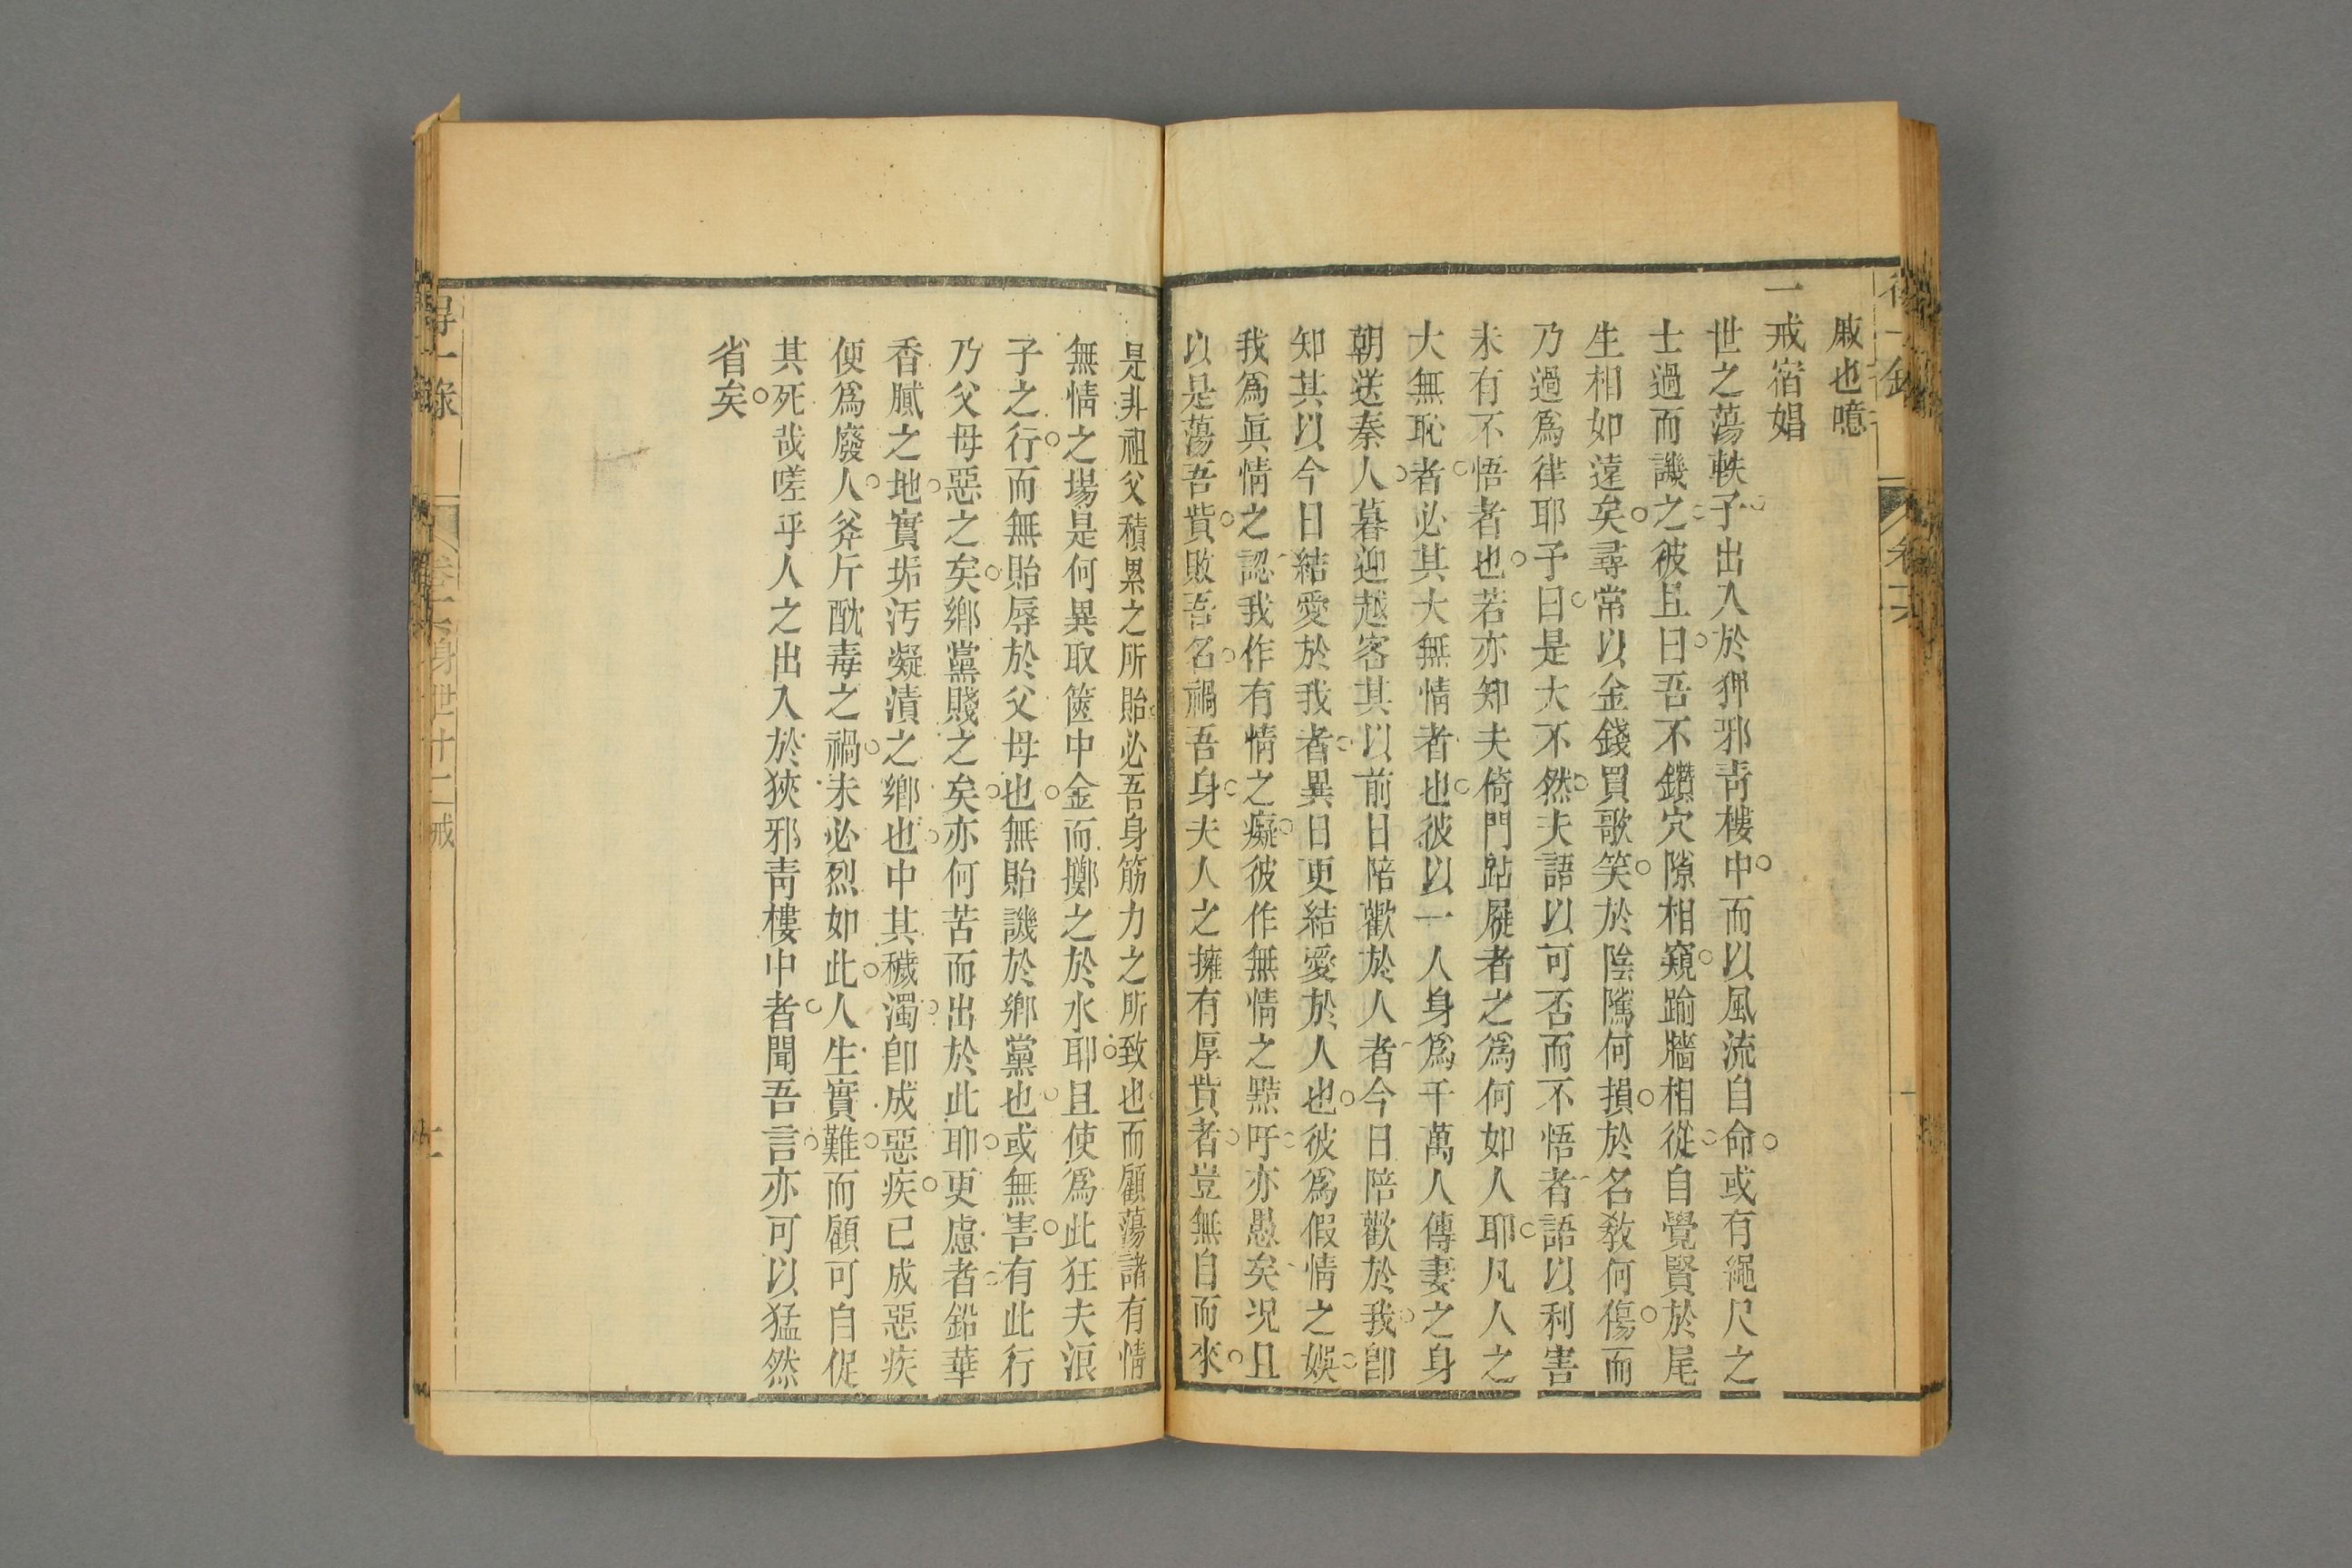 戚也噫
一戒宿娼
世之蕩軼子出入於狎邪靑樓中而以風流自命或有繩尺之
士過而譏之彼且曰吾不鑽穴隙相窺踰牆相從自覺賢於尾
生相如遠矣尋常以金錢買歌笑於陰隲何損於名敎何傷而
乃過爲律耶予曰是大不然夫語以可否而不悟者語以利害
未有不悟者也若亦知夫倚門跕屣者之爲何如人耶凡人之
大無恥者必其大無情者也彼以一人身爲千萬人傳妻之身
朝送秦人暮迎越客其以前日陪歡於人者今日陪歡於我卽
知其以今日結愛於我者異日更結愛於人也彼爲假情之娛
我爲眞情之認我作有情之癡彼作無情之黠吁亦愚矣况且
以是蕩吾貲敗吾名禍吾身夫人之擁有厚貲者豈無自而來
是非祖父積累之所貽必吾身筋力之所致也而顧蕩諸有情
無情之場是何異取篋中金而擲之於水耶且使爲此狂夫浪
子之行而無貽辱於父母也無貽譏於鄕黨也或無害有此行
乃父母惡之矣鄕黨賤之矣亦何苦而出於此耶更慮者鉛華
香膩之地實垢汚凝漬之鄕也中其穢濁卽成惡疾已成惡疾
便爲廢人斧斤酖毒之禍未必烈如此人生實難而顧可自促
其死哉嗟乎人之出入於狹邪靑樓中者聞吾言亦可以猛然
省矣
得一錄
身世十二戒